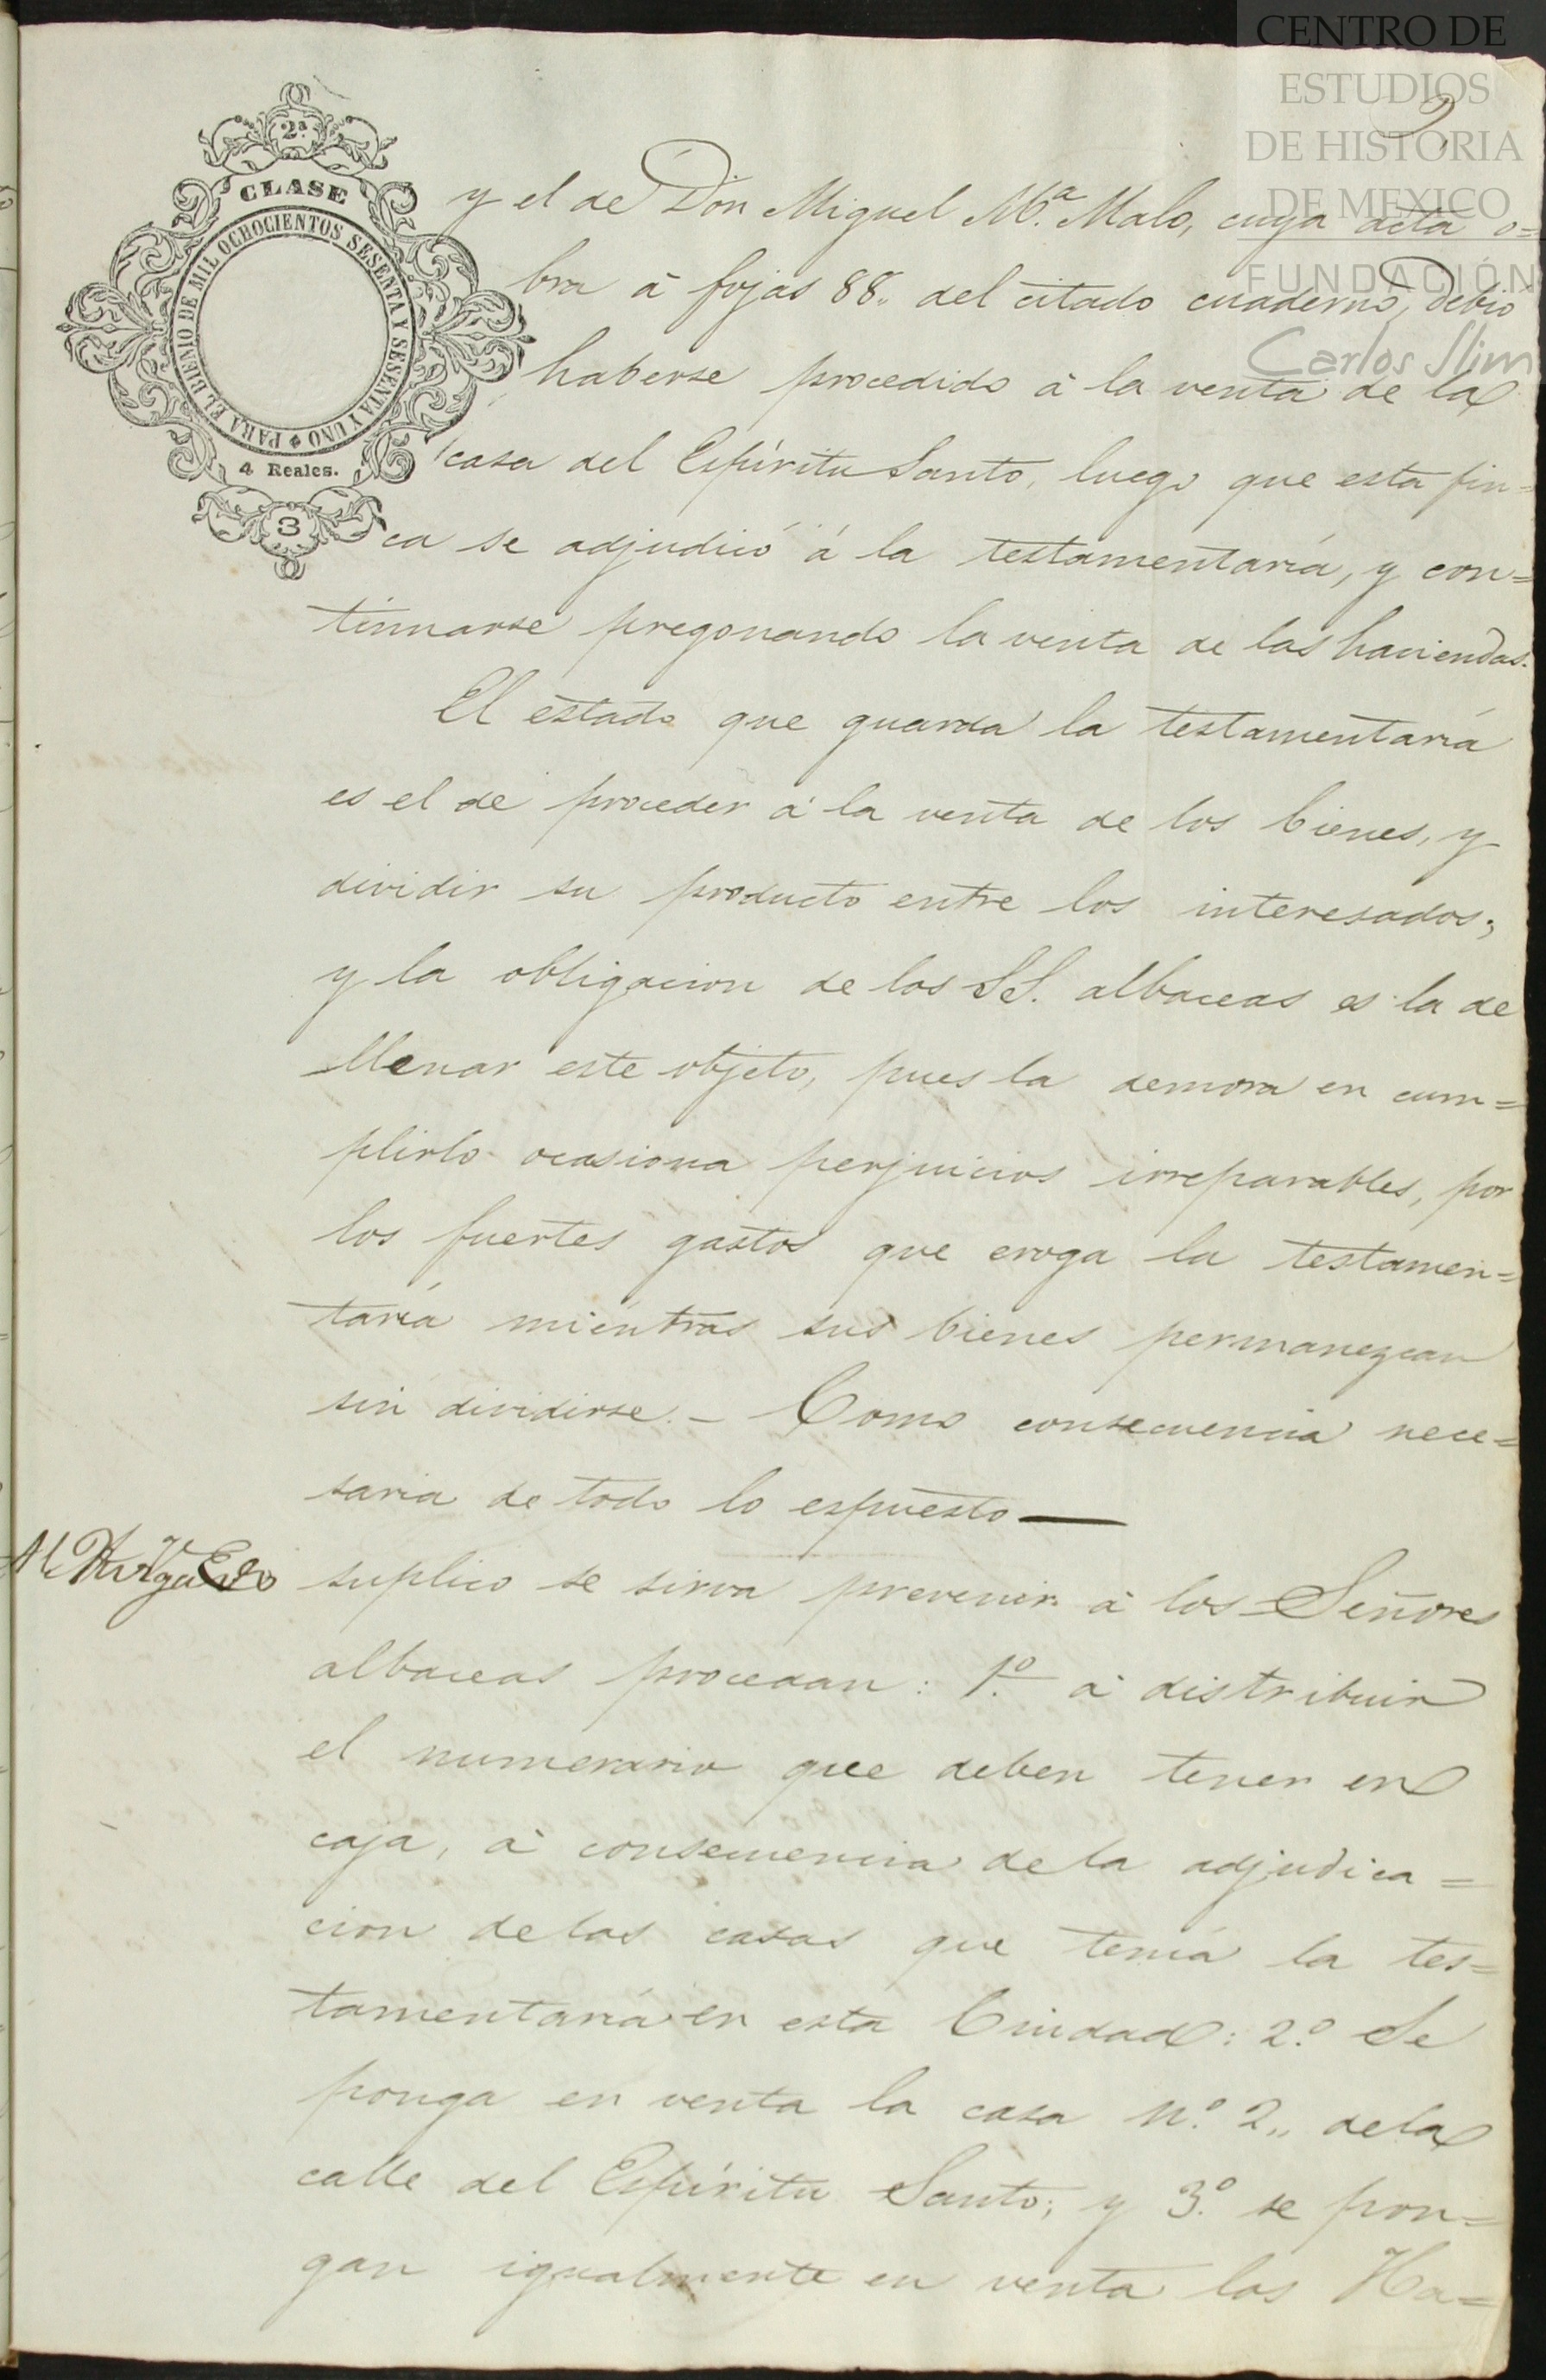 CENTRO DE
ESTUDIOS
DE HISTORIA
DE MEXICO
FUNDACIÓN
Carlos Slim
2
2ª
CLASE
PARA EL BIENIO DE MIL OCHOCIENTOS SESENTA Y SESENTA Y UNO
4 Reales.
3
y el de Dón Miguel Mª. Malo, cuya acta o=
bra á fojas 88,, del citado cuaderno, debió
haberse procedido á la venta de la
casa del Espíritu Santo, luego que esta fin=
ca se adjudicó á la testamentaría, y con=
tinuarse pregonando la venta de las haciendas.
El estado que guarda la testamentaría
es el de proceder á la venta de los bienes, y
dividir su producto entre los interesados;
y la obligacion de los SS. albaceas es la de
llenar este objeto, pues la demora en cum=
plirlo ocasiona perjuicios irreparables, por
los fuertes gastos que eroga la testamen=
taría miéntras sus bienes permanezcan
sin dividirse. - Como consecuencia nece=
saria de todo lo espuesto —
suplico se sirva prevenir á los Señores
albaceas procedan: 1º. á distribuir
el numerario que deben tener en
caja, á consecuencia de la adjudica=
cion de las casas que tenía la tes=
tamentaría en esta Ciudad: 2º. Se
ponga en venta la casa nº. 2,, de la
calle del Espíritu Santo; y 3º. se pon=
gan igualmente en venta las Ha=